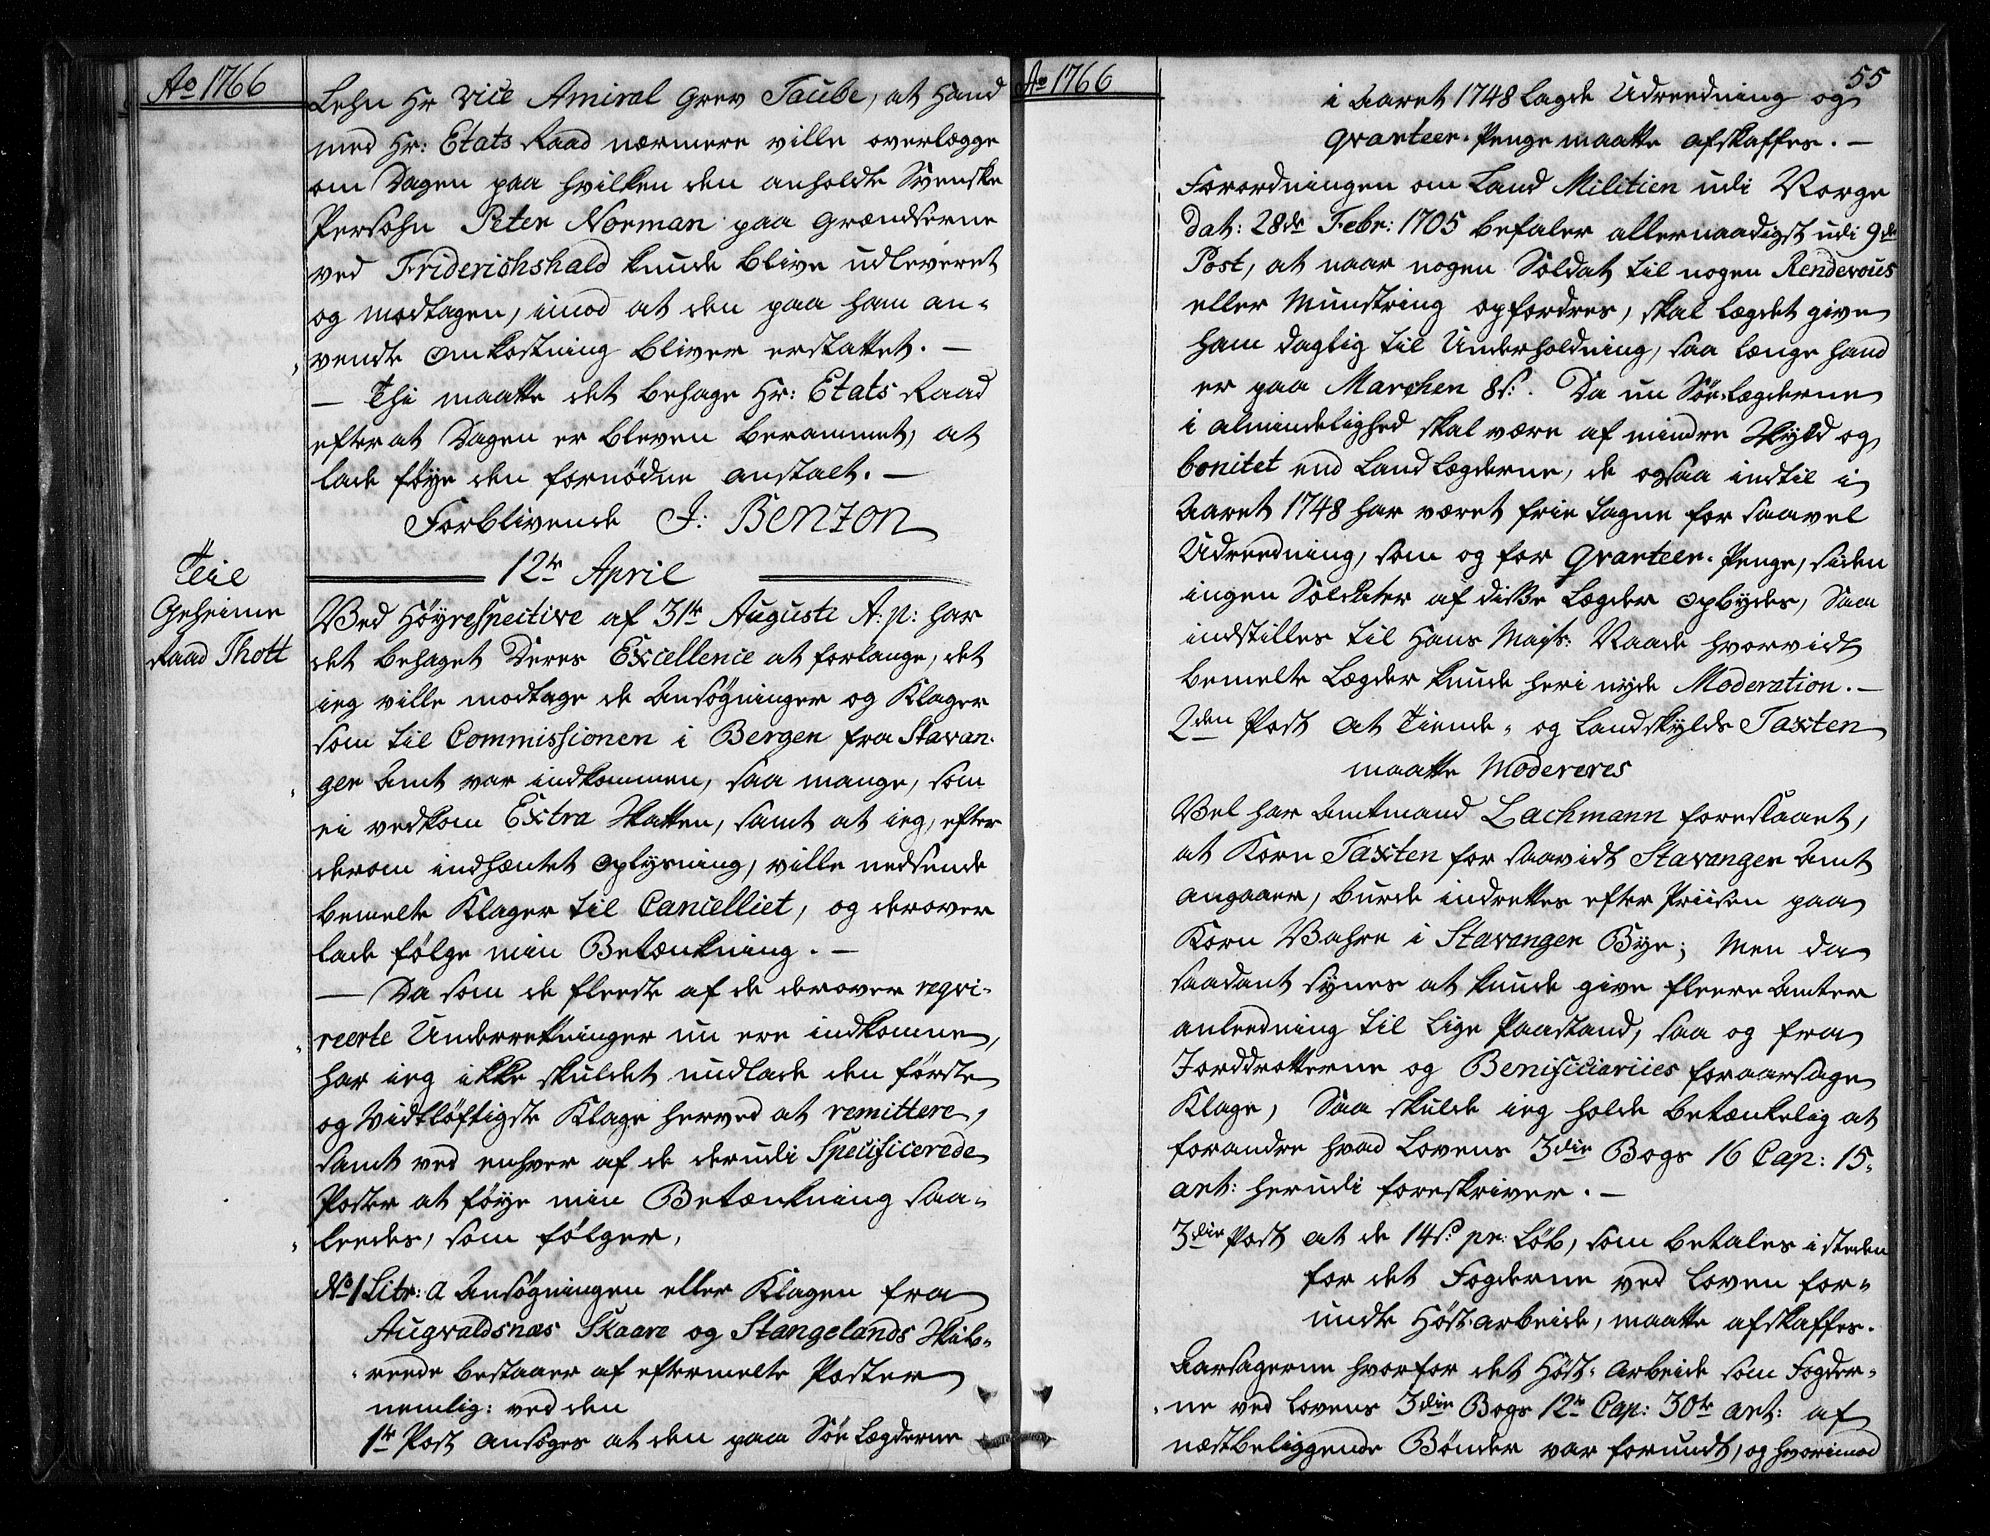 Ao 1766
Lehn Hr Vice Amiral Grev Taube, at Hand
med Hr: Etats Raad nærmere ville overlægge
om Dagen paa hvilken den anholdte Svenske
Persohn Peter Norman paa Grændserne
ved Friderichshald kunde blive udleveret
og modtagen, imod at den paa ham an-
vendte Omkostning bliver erstattet. —
— Thi maatte det behage Hr: Etats Raad
efterat Dagen er bleven berammet, at
lade føye den fornødne Anstalt. —
Forblivende J: Benzon
12te April
Til
Geheime
Raad Thott
Ved Høyrespective af 31te Augusti A: p: har
det behaget Deres Excellence at forlange, det
ieg ville modtage de Ansøgninger og Klager
som til Commissionen i Bergen fra Stavan-
ger Amt var indkommen, saa mange, som
ei vedkom Extra Skatten, samt at ieg, efter
derom indhæntet Oplysning, ville nedsende
bemelte Klager til Cancelliet, og derover
lade følge min Betænkning. —
— Da som de fleeste af de derover reqvi-
reerte Underretninger nu ere indkomne,
har ieg ikke skuldet undlade den første
og Vidtløftigste Klage herved at remittere,
samt ved enhver af de derudi Specificerede
Poster at føye min Betænkning saa-
leedes, som følger,
No 1 Litr: a Ansøgningen eller Klagen fra
Augvaldsnæs Skaare og Stangelands Skib-
reede bestaaer af eftermelte Poster
nemlig: ved den
1te Post ansøges at den paa Søe Lægderne
Ao 1766
55
i Aaret 1748 lagde Udreedning og
Qvarteer-Penge maatte afskaffes. —
Forordningen om Land Militien udi Norge
dat: 28de Febr: 1705 befaler allernaadigst udi 9de
Post, at naar nogen Soldat til nogen Rendevous
eller Munstring opfordres, skal lægdet give
ham daglig til Underholdning, saa længe hand
er paa Marchen 8 s:. Da nu Søe-Lægderne
i almindelighed skal være af mindre Skyld og
bonitet end Land Lægderne, de ogsaa indtil i
Aaret 1748 har været frie tagne for saavel
Udreedning, som og for Qvarteer-Penge, siden
ingen Soldater af disse Lægder opbydes, Saa
indstilles til Hans Majts: Naade hvorvidt
bemelte Lægder kunde heri nyde Moderation. —
2den Post at Tiende- og Landskylds Taxten
maatte Modereres
Vel har Amtmand Lachmann foreslaaet,
at Korn Taxten for saavidt Stavanger Amt
angaaer, burde indrettes efter Priisen paa
Korn Vahre i Stavanger Bye; Men da
saadant synes at kunde give fleere Amter
anleedning til lige Paastand, saa og fra
Jorddrotterne og Benificiariies foraarsage
Klage, Saa skulde ieg holde betænkelig at
forandre hvad Lovens 3die Bogs 16 Cap: 15-
art: herudi foreskriver. —
3die Post at de 14 s: pr: Løb, som betales i steden
for det Fogderne ved Loven for-
undte Høst-arbeide, maatte afskaffes.
Aarsagerne hvorfor det Høst-Arbeide som Fogder-
ne ved Lovens 3die Bogs 12te Cap: 30te art: af
næstbeliggende Bønder var forundt, og hvorimod